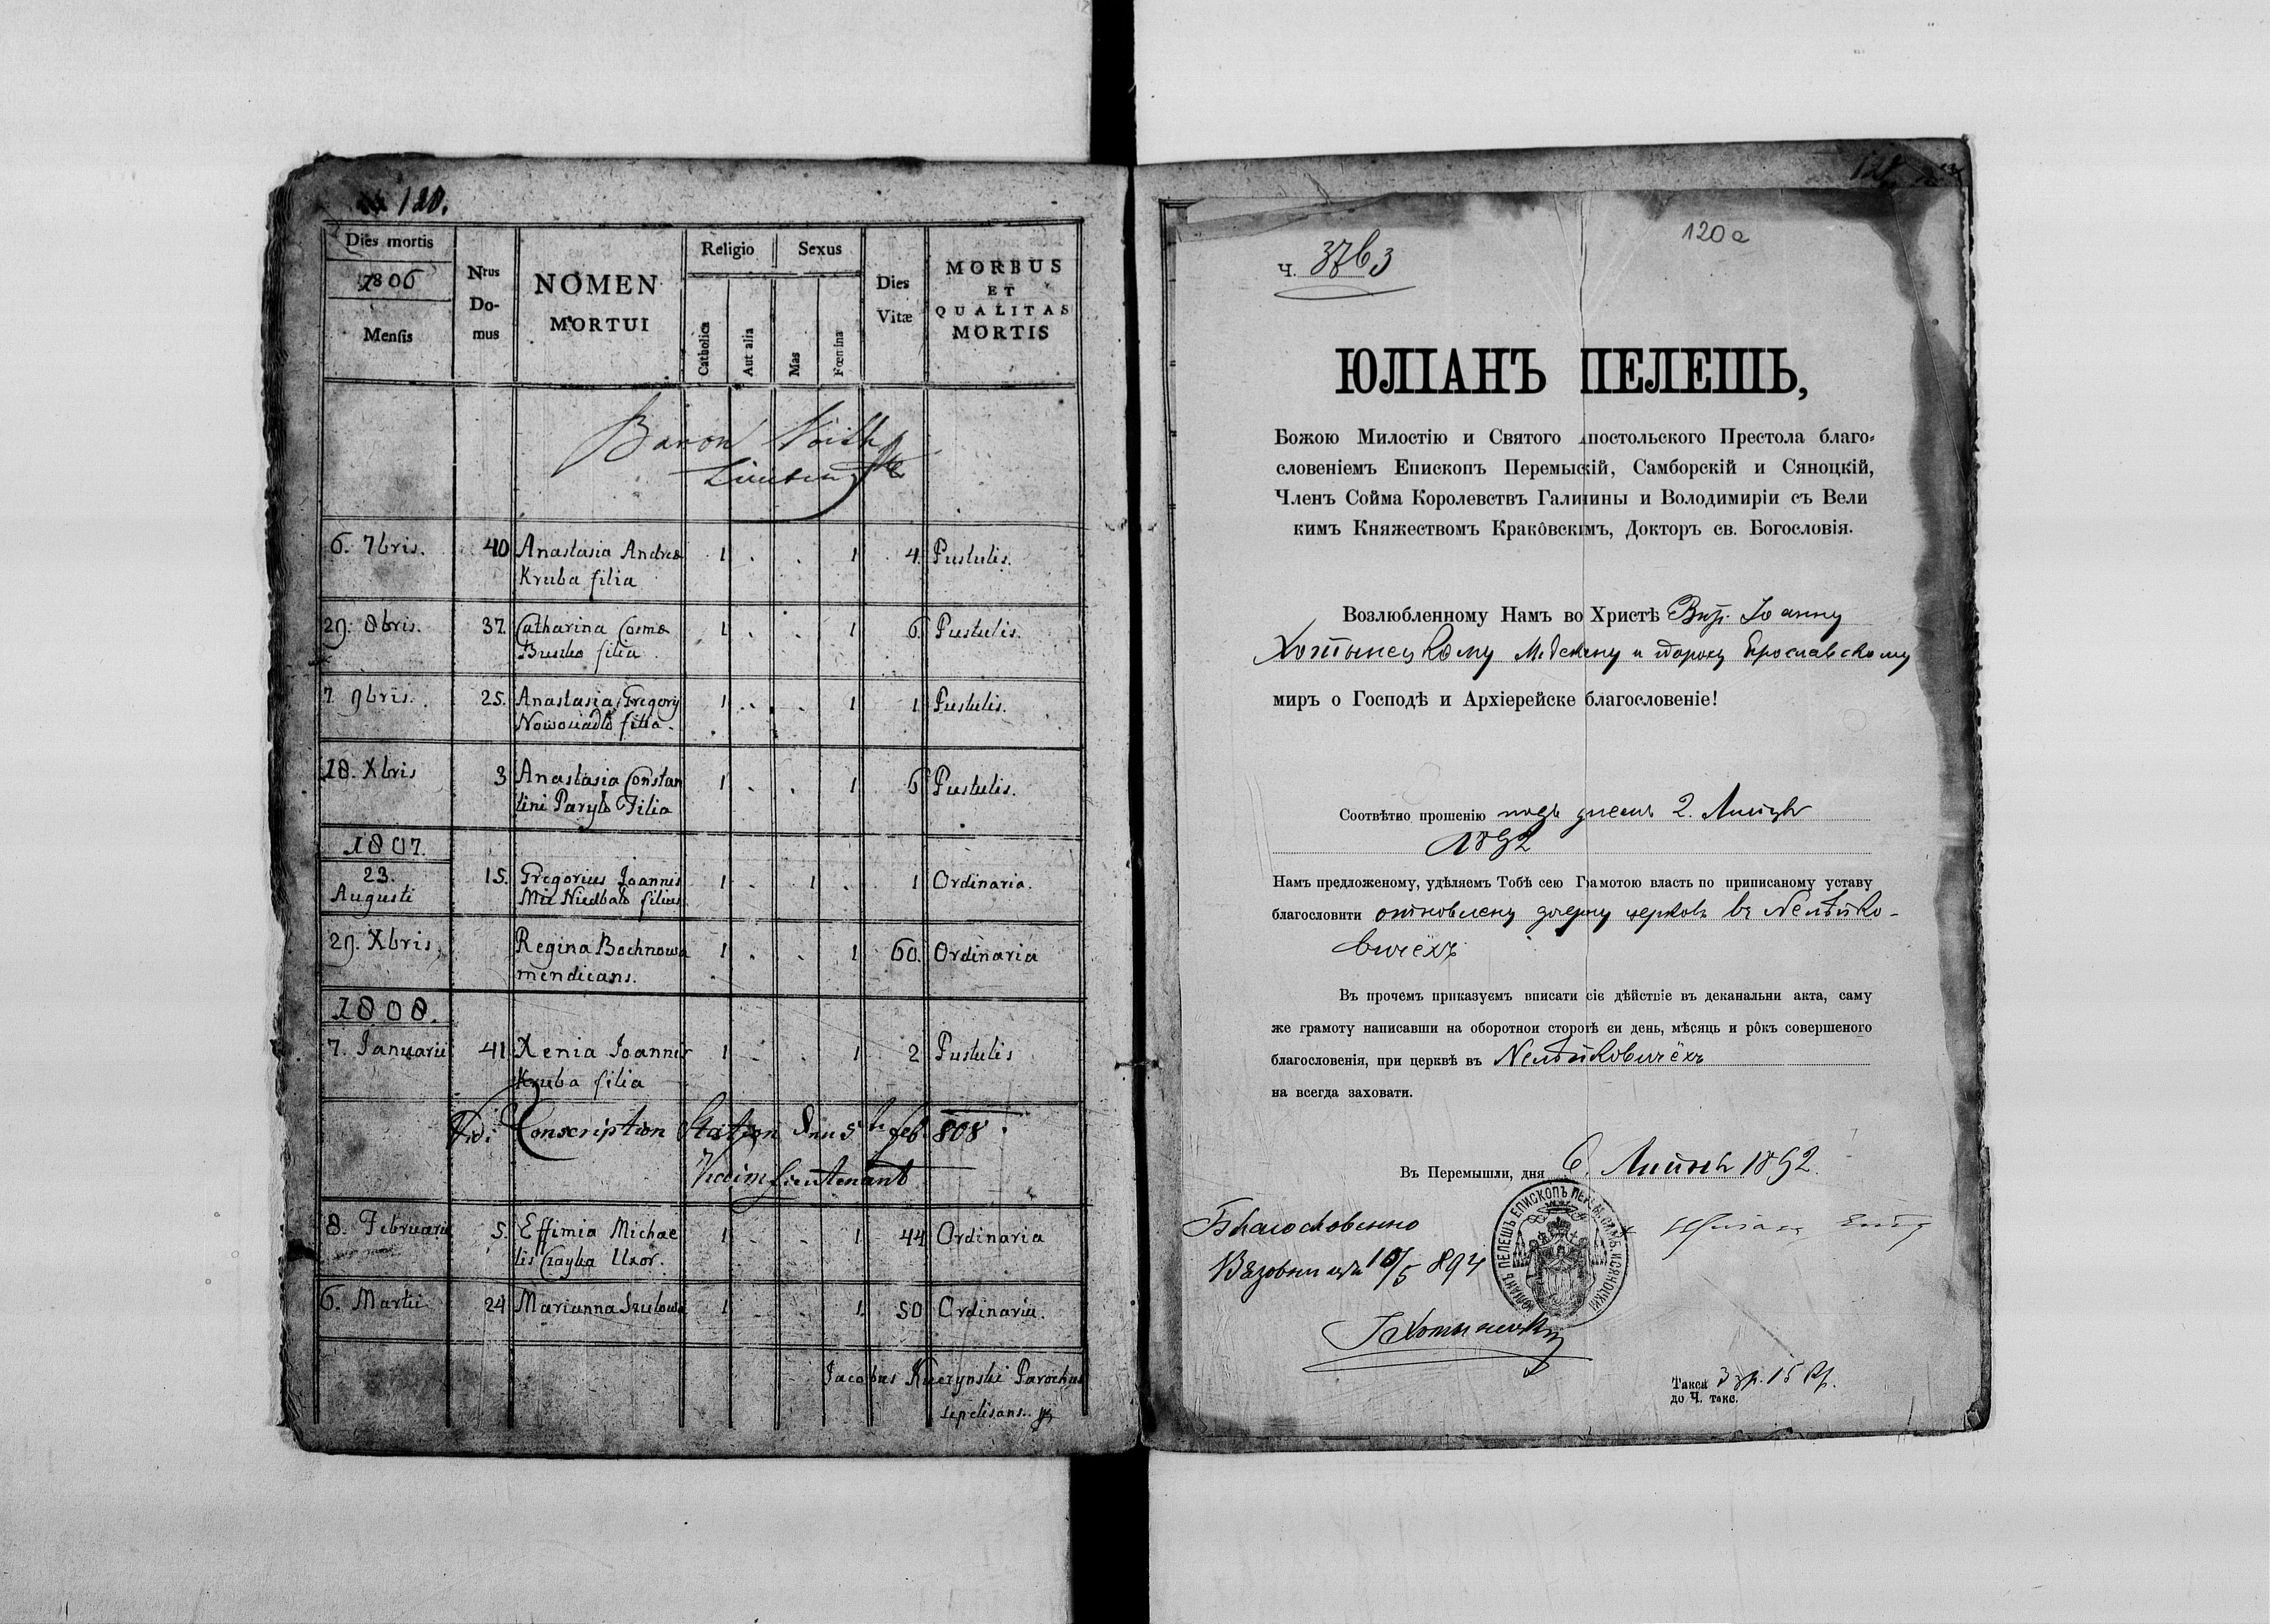 120.
Dies mortis
1806
Mensis
Nrus
Do-
mus
NOMEN
MORTUI
Religio
Sexus
Catholica
Aut alia
Mas
Fœmina
Dies
Vitæ
MORBUS
ET
QUALITAS
MORTIS
Baron
6. 7bris. 40 Anastasia Andreæ 1 . . 1 4. Pustulis.
Kruba filia
29. 8bris. 37. Catharina Cosmæ 1 . . 1 6. Pustulis.
Buszko filia
7. 9bris. 25. Anastasia Gregorij 1 . . 1 1 Pustulis.
filia.
18. Xbris 3 Anastasia Constan 1 . . 1 6 Pustulis.
tini Paryło Filia
1807.
23. 15. Gregorius Joannis 1 . 1 . 1 Ordinaria.
Augusti Niedbało filius
29. Xbris. Regina Bochnowa 1 . . 1 60. Ordinaria
mendicans.
1808.
7. Januarii 41. Xenia Joannis 1 . . 1 2 Pustulis
Kruba filia
Vidi Conscription Station feb 808.
Lieutenant
8. Februarii 5. Effimia Michae 1 . . 1 44 Ordinaria
lis Czayka Uxor.
6. Martii 24 Marianna Szulowa 1 . . 1. 50 Ordinaria.
Jacobus Kuczynski Parochus
sepelisans.
120a
Ч. 3763
ЮЛІАНЪ ПЕЛЕШЬ,
Божою Милостію и Святого Апостольского Престола благо-
словеніемъ Епископъ Перемыскій, Самборскій и Сяноцкій,
Членъ Сойма Королевствъ Галичины и Володимиріи съ Вели
кимъ Княжествомъ Краківскімъ, Докторъ св. Богословія.
Возлюбленному Намъ во Христѣ Впр. Іоанну
Хотынецкому Мѣ декану и пароху Ярославскому
миръ о Господѣ и Архіерейске благословеніе!
Соотвѣтно прошенію подъ днемъ 2. Липця
1892
Намъ предложеному, удѣляемъ Тобѣ сею Грамотою власть по приписаному уставу
благословити отновлену дочерну церковь въ Нелѣпко-
вичехъ
Въ прочемъ приказуемъ вписати сіє дѣйствіе въ деканальни акта, саму
же грамоту написавши на оборотнои сторонѣ еи день, мѣсяць и рôкъ совершеного
благословенія, при церквѣ въ Нелѣпковичехъ
на всегда заховати.
Въ Перемышли, дня 6. Липня 1892.
Благословенно
Вязовница 10/5 894
Хотынецкій
ЮЛІАНЪ ПЕЛЕШЬ ЕПИСКОПЪ ПЕРЕМ. САМБ. И СЯНОЦКІЙ
† Юліанъ Епп
Такса 3 зр. 15 кр.
до Ч. такс.